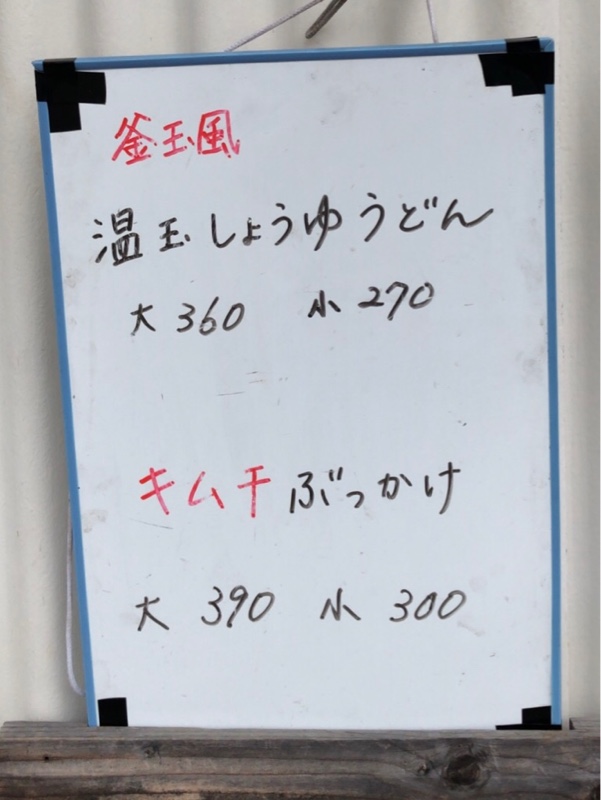 釜玉風
温玉しょうゆうどん
大 360 小 270
キムチぶっかけ
大 390 小 300